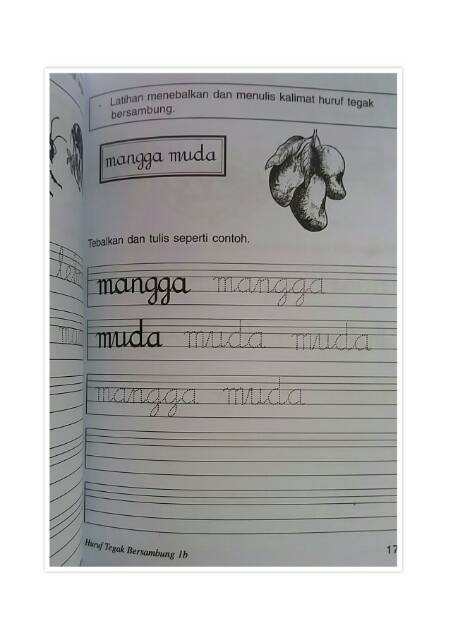 Latihan menebalkan dan menulis kalimat huruf tegak
bersambung.
mangga muda
Tebalkan dan tulis seperti contoh.
mangga mangga
muda muda muda
mangga muda
Huruf Tegak Bersambung 1b
17